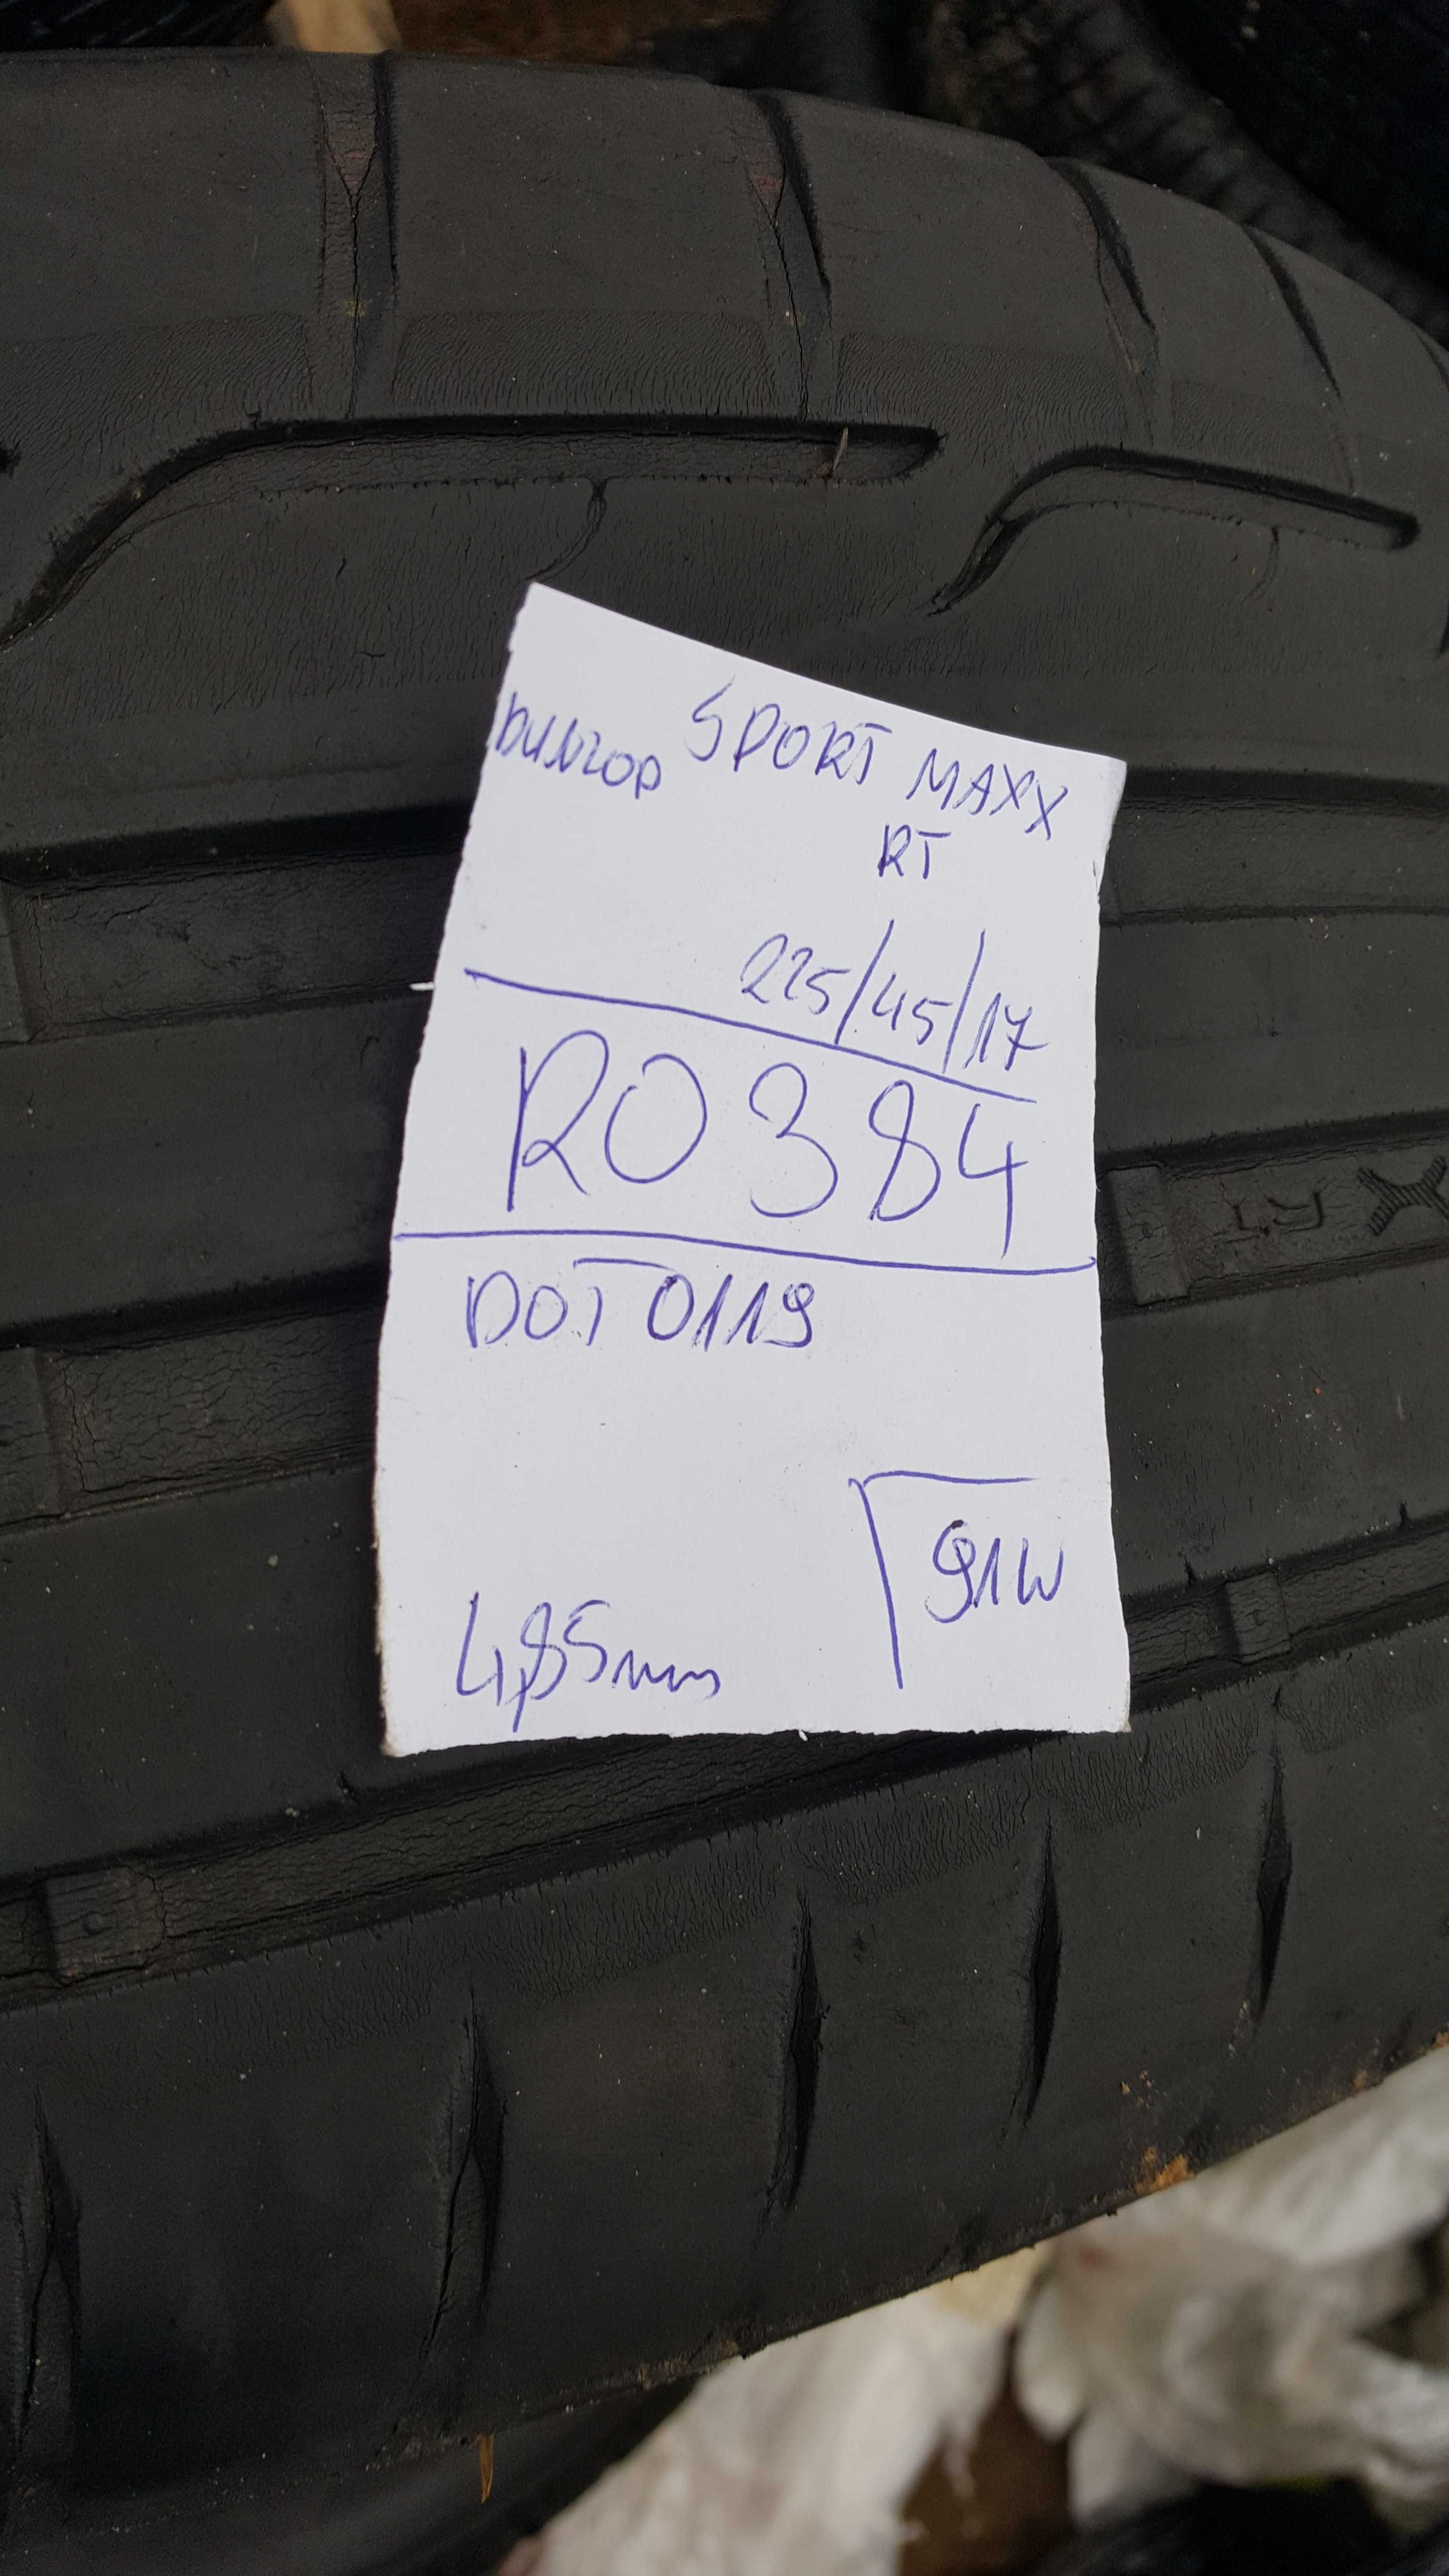 DUNLOP SPORT MAXX
RT
225/45/17
R0384
DOT 0119
91W
4,85mm
LY